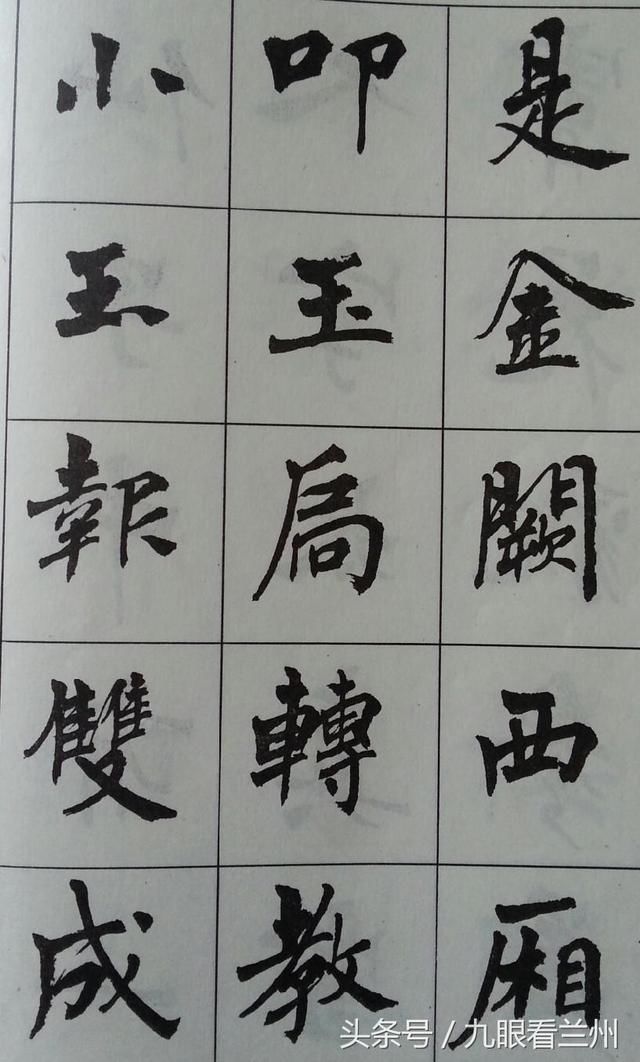 是金闕西厢
叩玉扃轉教
小玉報雙成
头条号 / 九眼看兰州